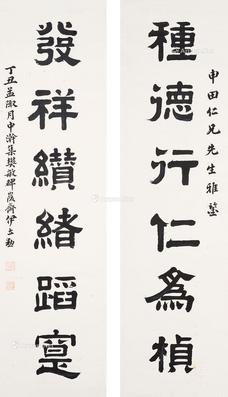 申田仁兄先生雅鑒
種德行仁為楨
發祥纘緒蹈寔
丁丑孟淑月申瀚集樊敏碑 伊立勳